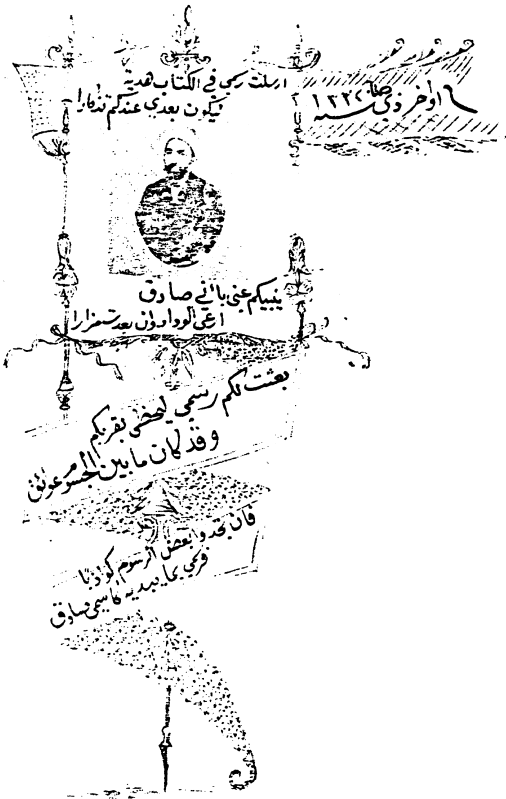 ارسلت رسمي في الكتاب هدية
ليكون بعدي عندكم تذكارا
اواخر ذي سنه
ينبيكم عني بأني صادق
ارعى الوداد وان بعدت مزارا
بعثت لكم رسمي ليحظى بقربكم
وقد كان ما بين الجسوم عوائق
فان تجدوا بعض الرسوم كواذبا
فرسمي بما يبديه كاسمي صادق